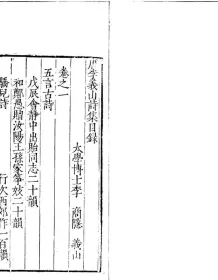 李義山詩集目錄
太學博士李 商隱 義山
卷之一
五言古詩
戊辰會靜中出貽同志二十韻
和鄭愚贈汝陽王孫家箏妓二十韻
驕兒詩
行次西郊作一百韻